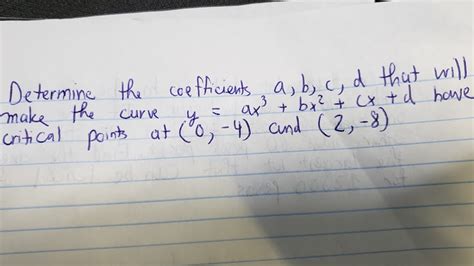 Determine the coefficients a, b, c, d that will
make the curve y = ax³ + bx² + cx + d have
critical points at (0, -4) and (2, -8)